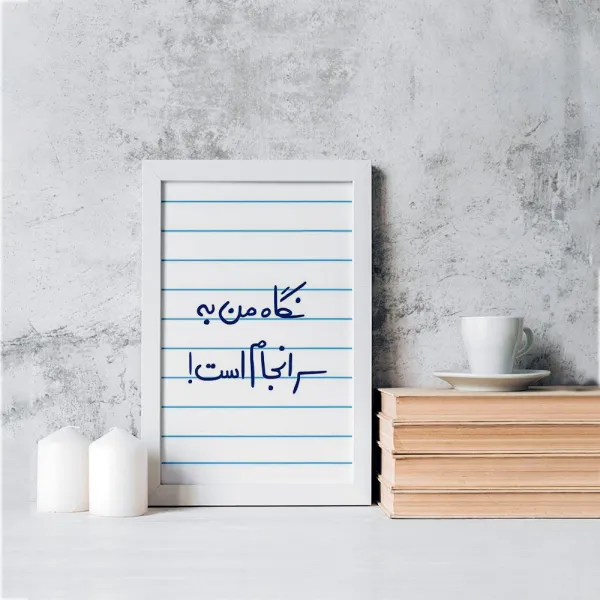 نگاه من به
سرانجام است!